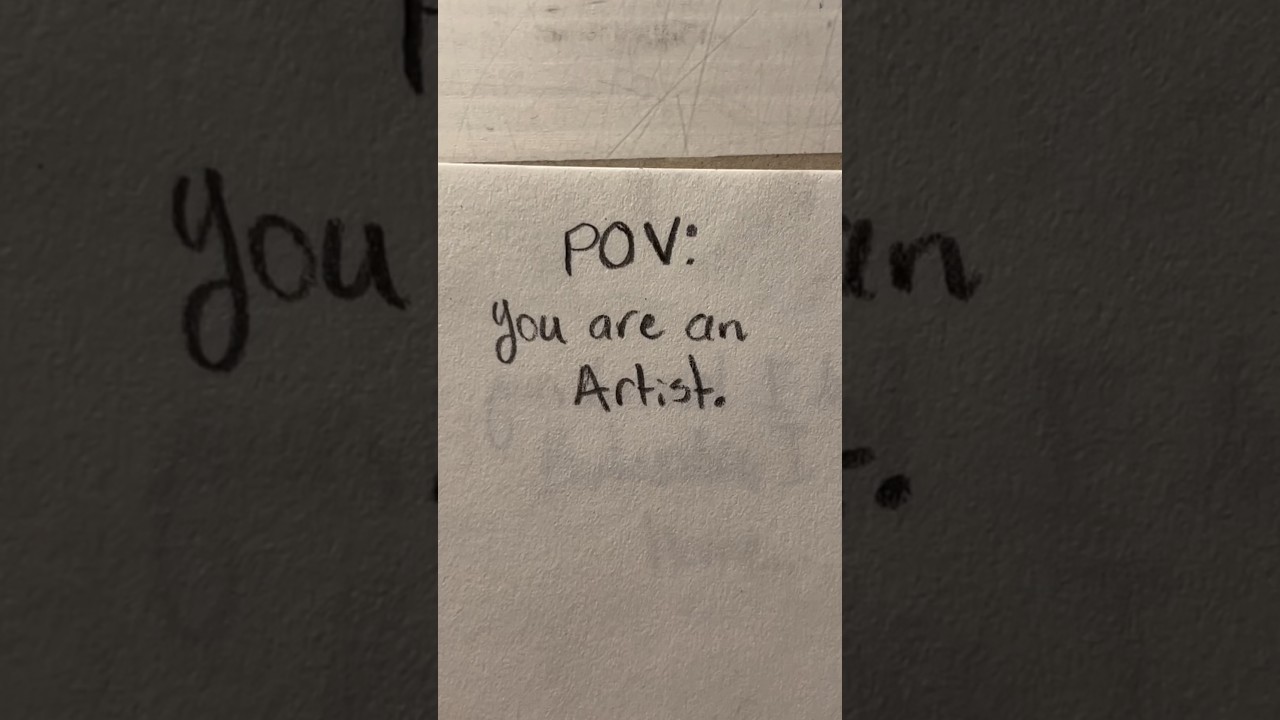 POV:
you are an
Artist.